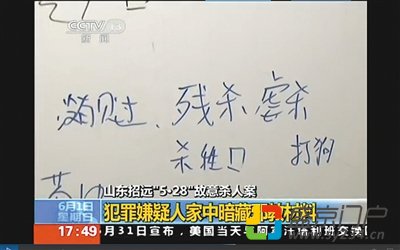 CCTV 13
新闻
见过、残杀 虐杀
杀牲口 打狗
山东招远“5·28”故意杀人案
6月1日
星期日
犯罪嫌疑人家中暗藏 材料
17:49
月31日宣布，美国当天与阿富汗塔利班交换
门户